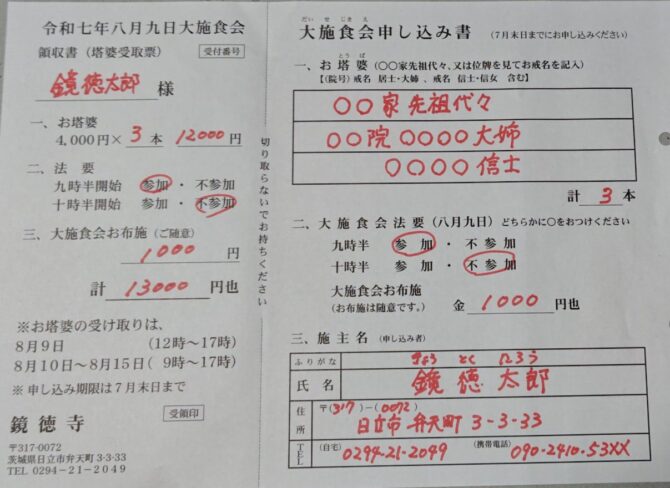 令和七年八月九日大施食会
領収書（塔婆受取票） 受付番号
鏡徳太郎 様
一、お塔婆
4,000円× 3 本 12000 円
二、法要
九時半開始 参加・不参加
十時半開始 参加・不参加
三、大施食会お布施（ご随意）
1000 円
計 13000 円也
※お塔婆の受け取りは、
8月9日 （12時〜17時）
8月10日〜8月15日（9時〜17時）
※申し込み期限は7月末日まで
鏡徳寺 受領印
〒317-0072
茨城県日立市弁天町3-3-33
TEL 0294-21-2049
切り取らないでお持ちください
だいせじきえ
大施食会申し込み書 （7月末日までにお申し込みください）
とうば
一、お塔婆（〇〇家先祖代々、又は位牌を見てお戒名を記入）
【（院号）戒名 居士・大姉、戒名 信士・信女 含む】
〇〇家先祖代々
〇〇院〇〇〇〇大姉
〇〇〇〇信士
計 3 本
二、大施食会法要（八月九日）どちらかに〇をおつけください
九時半 参加・不参加
十時半 参加・不参加
大施食会お布施
（お布施は随意です。） 金 1000 円也
三、施主名（申し込み者）
ふりがな きょう とく たろう
氏名 鏡徳太郎
住所 〒（317）-（0072）
日立市弁天町3-3-33
TEL （自宅）0294-21-2049 （携帯電話）090-2410-53XX